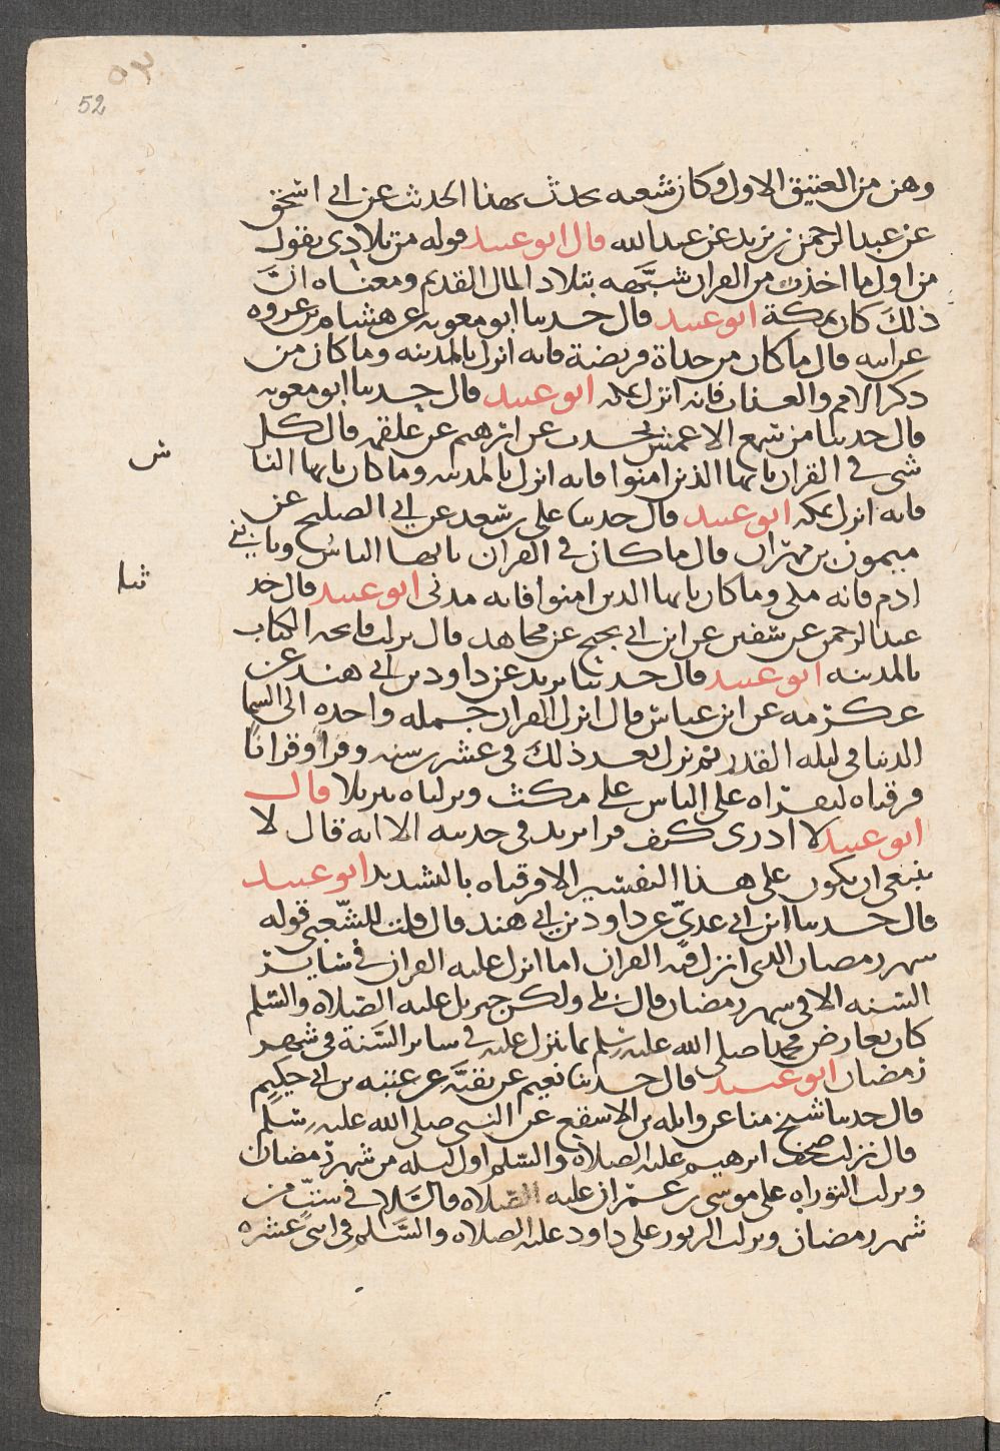 ٥٣
52
وهن من العتيق الاول وكان شعبه يحدث بهذا الحديث عن ابي اسحق
عن عبد الرحمن بن يزيد عن عبد الله قال ابو عبيد قوله من تلادي يقول
من اول ما اخذت من القران شبَّهه بتلاد المال القديم ومعناه انَّ
ذلكَ كان بمكة ابو عبيد قال حدثنا ابو معويه عن هشام بن عروه
عن ابيه قال ما كان من حد او فريضة فانه انزل بالمدينه وما كان من
ذكر الامم والعذاب فانه انزل بمكه ابو عبيد قال حدثنا ابو معويه
قال حدثنا من سمع الاعمش يحدث عن ابرهيم عن علقمه قال كل
شي في القران يا يها الذين امنوا فانه انزل بالمدينه وما كان يا يها النا
س
فانه انزل بمكه ابو عبيد قال حدثنا علي بن معبد عن ابي المليح عن
ميمون بن مهران قال ما كان في القران يا يها الناس ويا بني
ادم فانه مكي وما كان يا يها الذين امنوا فانه مدني ابو عبيد قال حد
ثنا
عبد الرحمن عن سفين عن ابن ابي نجيح عن مجاهد قال نزلت فاتحه الكتاب
بالمدينه ابو عبيد قال حدثنا يزيد عن داود بن ابي هند عن
عكرمه عن ابن عباس قال انزل القران جمله واحده الى السما
الدنيا في ليله القدر ثم نزل بعد ذلكَ في عشرين سنه وقرا وقرانا
فرقناه لتقراه على الناس على مكث ونزلناه تنزيلا قال
ابو عبيد لا ادري كيف قرا يزيد في حديثه الا انه قال لا
ينبغي ان يكون على هذا التفسير الا فرقناه بالتشديد ابو عبيد
قال حدثنا ابن ابي عديّ عن داود بن ابي هند قال قلت للشَّعبي قوله
شهر رمضان الذي انزل فيه القران اما انزل عليه القران في سايرِ
السنه الا في شهر رمضان قال بلى ولكن جبريل عليه الصلاه والسلم
كان يعارض محمدا صلى الله عليه وسلم بما ينزل عليه في ساير السَّنة في شهر
رمضان ابو عبيد قال حدثنا نعيم عن بقيَّه عن عتبه بن ابي حكيم
قال حدثنا شيخ منا عن واثله بن الاسقع عن النبي صلى الله عليه وسلم
قال نزلت صحف ابرهيم عليه الصلاه والسلم اول ليله من شهر رمضان
ونزلت التوراه على موسى بن عمران عليه الصلاه والسَّلام في ستٍّ من
شهر رمضان ونزلت الزبور على داود عليه الصلاه والسَّلم في اثني عشره